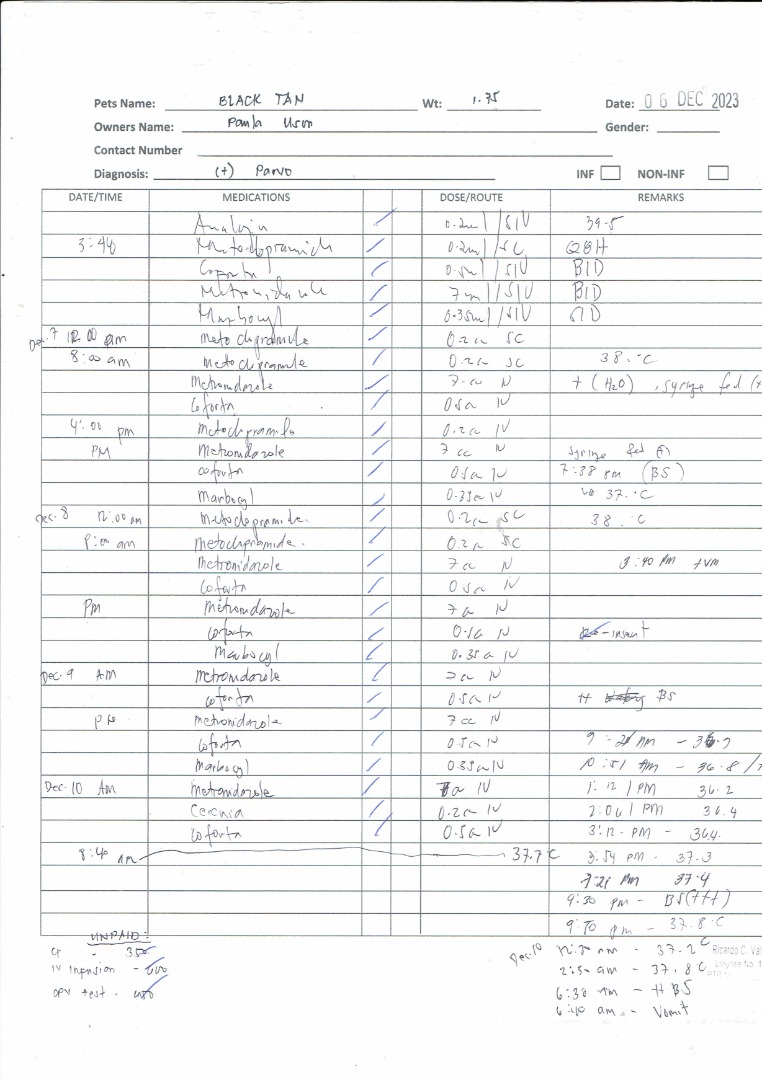 Pets Name: BLACK TAN Wt: 1.75 Date: 06 DEC 2023
Owners Name: Paula Gender:
Contact Number
Diagnosis: (+) Parvo INF NON-INF
DATE/TIME MEDICATIONS DOSE/ROUTE REMARKS
Analgin 0.2ml / SIV 39.5
3:40 Metoclopramide 0.2ml / SC Q8H
Coforta 0.5ml / SIV BID
Metronidazole 7ml / SIV BID
Marbocyl 0.35ml / SIV
Dec. 7 12:00 am metoclopramide 0.2cc SC
8:00 am metoclopramide 0.2cc SC 38.°C
Metronidazole 7cc IV + (H2O) , syringe fed
Coforta 0.5cc IV
4:00 pm metoclopramide 0.2cc IV
PM Metronidazole 7cc IV syringe fed (+)
coforta 0.5cc IV 7:38 pm (BS)
Marbocyl 0.35cc IV 37.°C
Dec. 8 12:00 am metoclopramide 0.2cc SC 38.°C
8:00 am metoclopramide 0.2cc SC
metronidazole 7cc IV 3:40 PM +vm
Coforta 0.5cc IV
PM metronidazole 7cc IV
coforta 0.5cc IV -insent
Marbocyl 0.35cc IV
Dec. 9 AM metronidazole 7cc IV
coforta 0.5cc IV BS
PM metronidazole 7cc IV
Coforta 0.5cc IV
Marbocyl 0.35cc IV 10:51 AM - 36.8
Dec-10 AM metronidazole 7cc IV 1:12 / PM 36.2
Cerenia 0.2cc IV 2:06 / PM 36.4
Coforta 0.5cc IV 3:12 - PM - 36.4
8:40 am 37.7°C 3:54 PM - 37.3
7:21 PM 37.4
9:30 pm - BS(+++)
9:50 pm - 37.8°C
UNPAID:
CF - 350
IV infusion - 600
CPV test -
Dec 10 am - 37.2°C
2:50 am - 37.8°C
6:30 AM - BS
6:40 am - Vomit
Ricardo C.
License No.